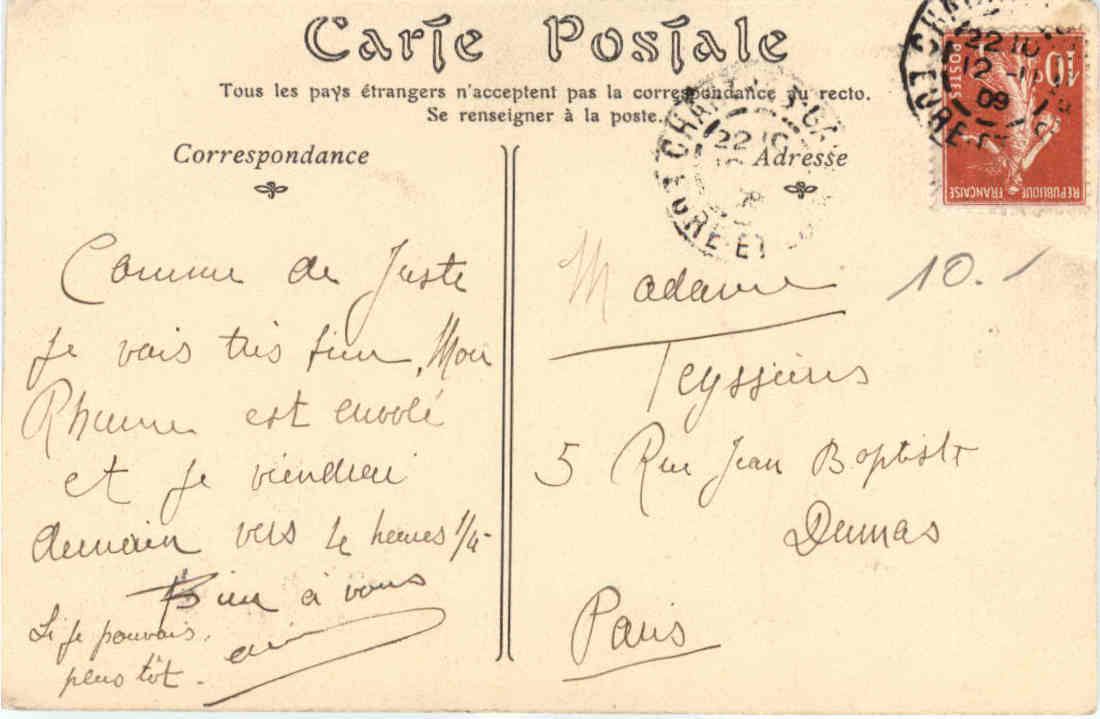 Carte Postale
Tous les pays étrangers n'acceptent pas la correspondance au recto.
Se renseigner à la poste.
Correspondance
Comme de Juste
je vais très bien, Mon
Rhume est envolé
et je viendrai
demain vers 4 heures 1/4-
Bien à vous
Si je pouvais,
plus tôt -
Adresse
Madame
Teyssieres
5 Rue Jean Baptiste
Dumas
Paris
10.
22 10
EURE ET
22 10
12 -11
09
EURE
10
POSTES
REPUBLIQUE FRANÇAISE